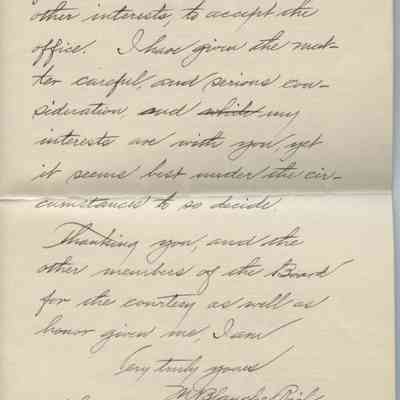 other interests, to accept the
office. I have given the mat-
ter careful, and serious con-
sideration, and while my
interests are with you, yet
it seems best under the cir-
cumstances to so decide.
Thanking you, and the
other members of the Board
for the courtesy as well as
honor given me, I am
Very truly yours
M. Blanche